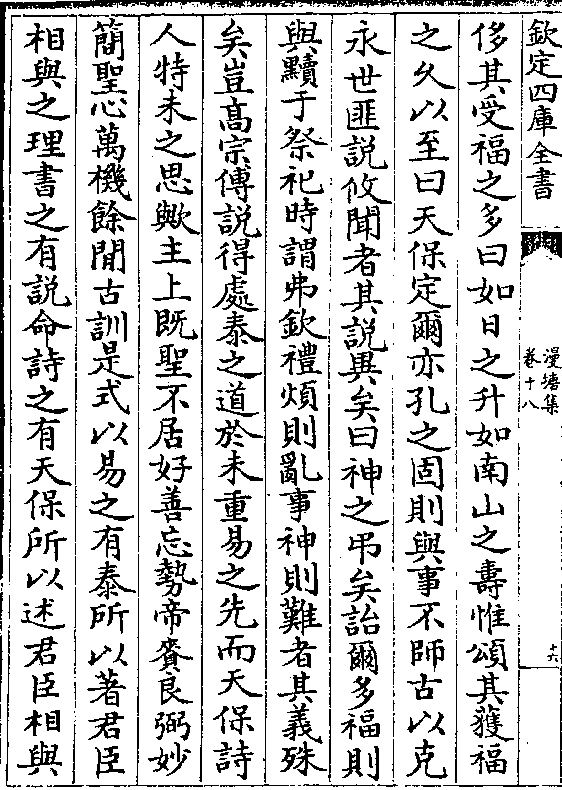 欽定四庫全書
漫塘集
卷十八
十六
侈其受福之多曰如日之升如南山之壽惟頌其獲福
之久以至曰天保定爾亦孔之固則與事不師古以克
永世匪説攸聞者其説異矣曰神之弔矣詒爾多福則
與黷于祭祀時謂弗欽禮煩則亂事神則難者其義殊
矣豈髙宗傅説得處泰之道於未重易之先而天保詩
人特未之思歟主上既聖不居好善忘勢帝賚良弼妙
簡聖心萬機餘閒古訓是式以易之有泰所以著君臣
相與之理書之有説命詩之有天保所以述君臣相與